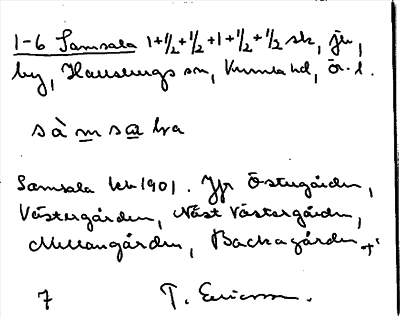 1-6 Samsala 1+1/2+1/2+1+1/2+1/2 sk, jb,
by, Hallsbergs sn, Kumla hd, Ö. l.
sà m sa la
Samsala kb 1901. Jfr Östergården,
Västergården, Näst Västergården,
Mellangården, Backagården
7 T. Ericsson.